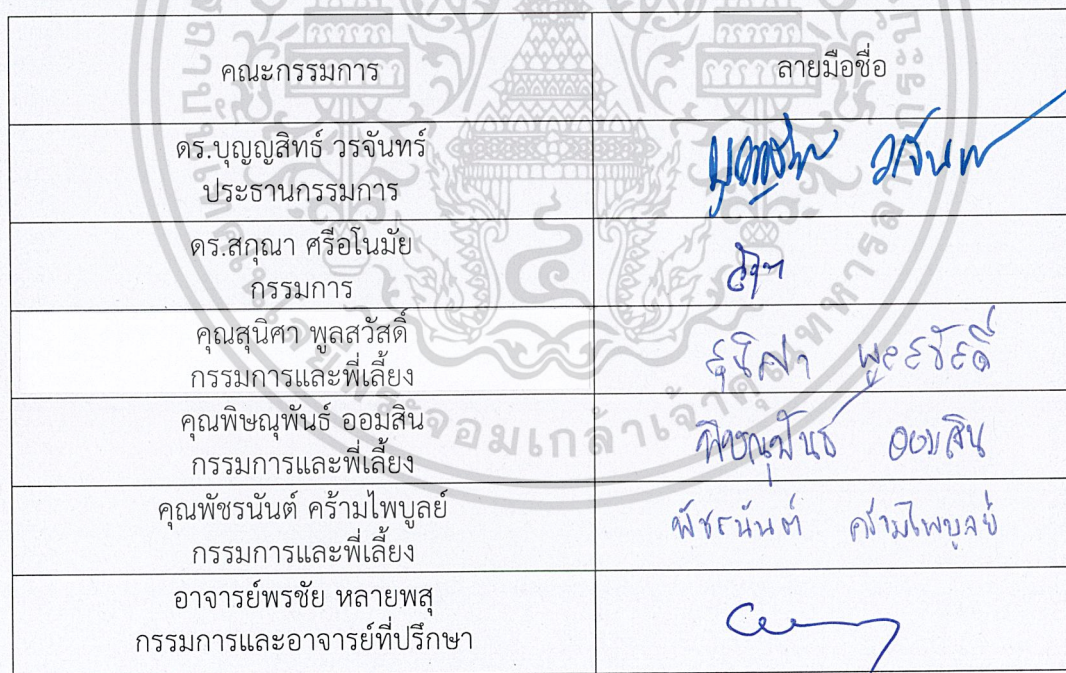 คณะกรรมการ
ลายมือชื่อ
ดร.บุญญสิทธ์ วรจันทร์
ประธานกรรมการ
ดร.สกุณา ศรีอโนมัย
กรรมการ
คุณสุนิศา พูลสวัสดิ์
กรรมการและพี่เลี้ยง
สุนิศา พูลสวัสดิ์
คุณพิษณุพันธ์ ออมสิน
กรรมการและพี่เลี้ยง
พิษณุพันธ์ ออมสิน
คุณพัชรนันต์ คร้ามไพบูลย์
กรรมการและพี่เลี้ยง
พัชรนันต์ คร้ามไพบูลย์
อาจารย์พรชัย หลายพสุ
กรรมการและอาจารย์ที่ปรึกษา